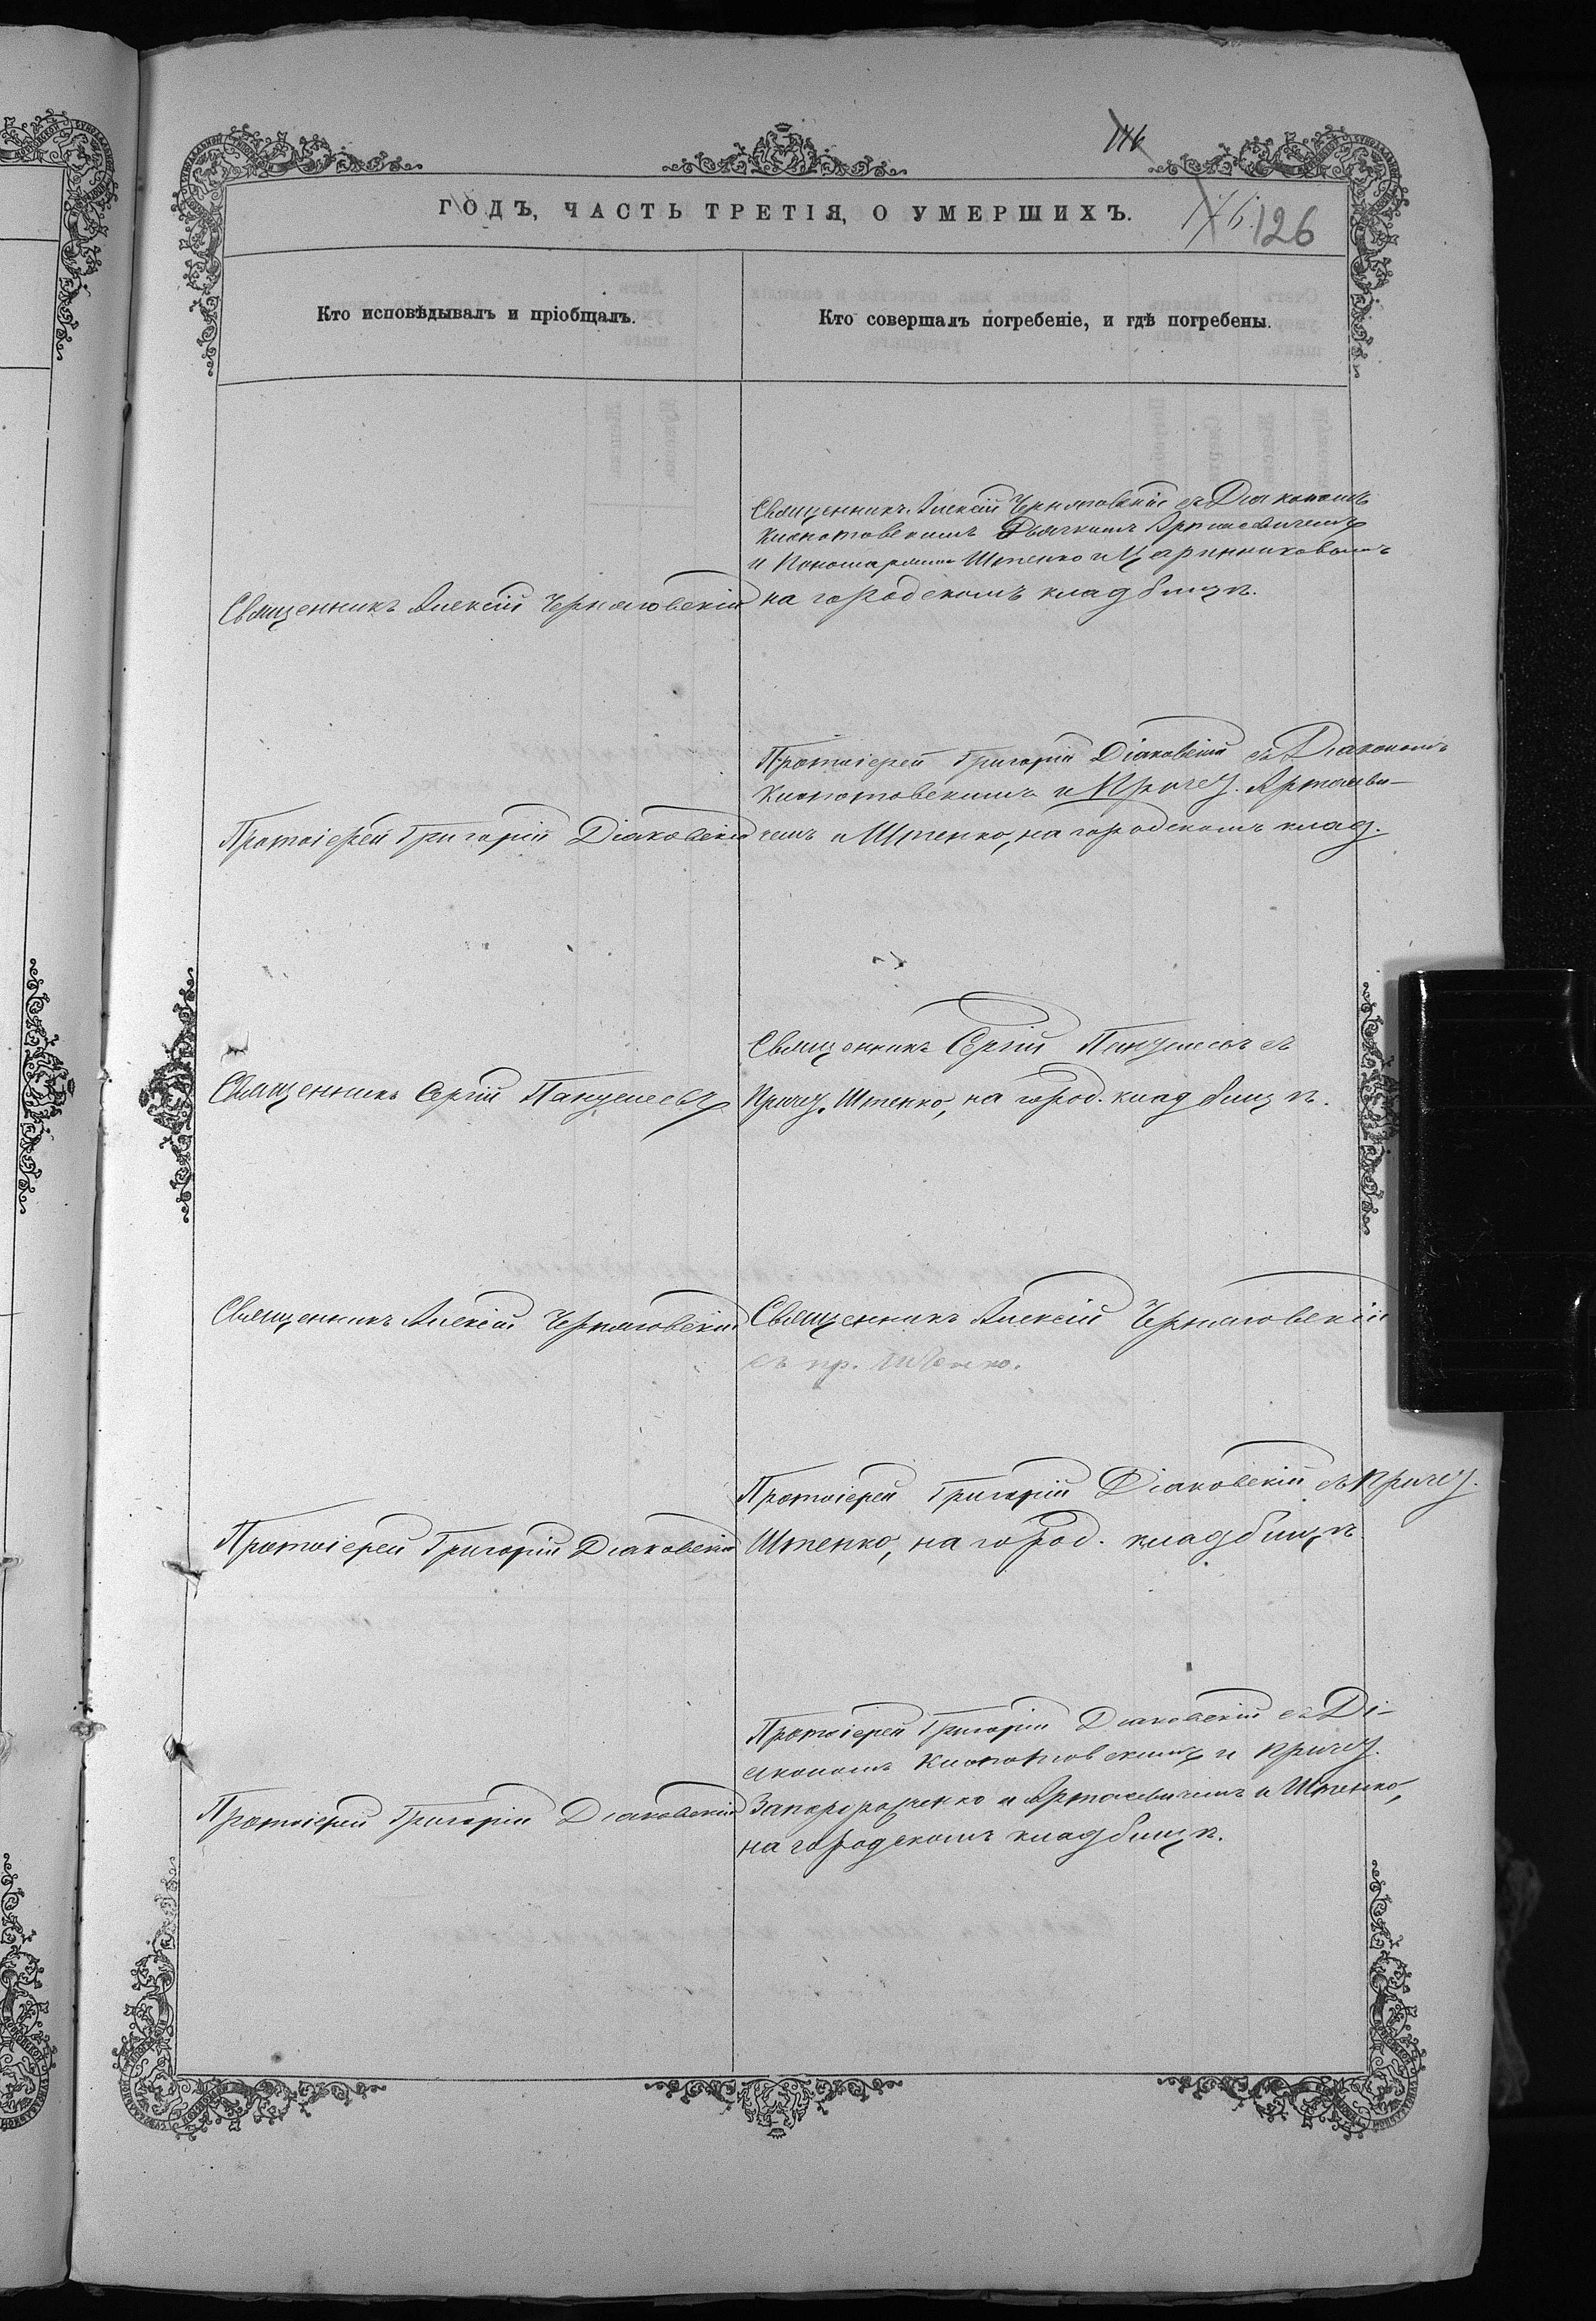 116
ГОДЪ, ЧАСТЬ ТРЕТІЯ, О УМЕРШИХЪ.
176. 126
Кто исповѣдывалъ и пріобщалъ.
Кто совершалъ погребеніе, и гдѣ погребены.
Священникъ Алексій Черняговскій
Священникъ Алексій Черняговскій съ Діакономъ
Клопотовскимъ Дьячкомъ Артасевичемъ
и Пономарями Штенко и Царинниковымъ
на городскомъ кладбищѣ.
Протоіерей Григорій Діаковскій
Протоіерей Григорій Діаковскій съ Діакономъ
Клопотовскимъ и Причет. Артасеви-
чемъ и Штенко, на городскомъ клад.
Священникъ Сергій
Священникъ Сергій съ
Причет. Штенко, на город. кладбищѣ.
Священникъ Алексій Черняговскій
Священникъ Алексій Черняговскій
съ пр. Штенко.
Протоіерей Григорій Діаковскій
Протоіерей Григорій Діаковскій съ Причет.
Штенко, на город. кладбищѣ.
Протоіерей Григорій Діаковскій
Протоіерей Григорій Діаковскій съ Ді-
акономъ Клопотовскимъ и причет.
Запорожченко и Артасевичемъ и Штенко,
на городскомъ кладбищѣ.